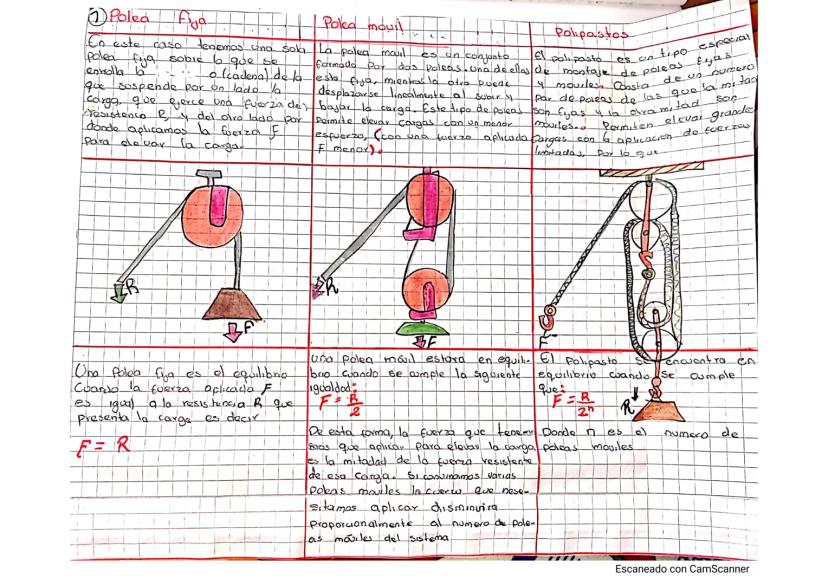 ① Polea Fija
En este caso tenemos una sola
polea fija, sobre lo que se
enrolla la o (cadena) de la
que suspende por un lado la
carga, que ejerce una fuerza de
resistencia R, y del otro lado por
donde aplicamos la fuerza F
para elevar la carga.
Polea móvil
La polea movil es un conjunto
formado por dos poleas. una de ellas
esta fija, mientras la otra puede
desplazarse linealmente al subir y
bajar la carga. Este tipo de poleas
permite elevar cargas con un menor
esfuerzo, (con una fuerza aplicada
F menor).
Polipastos
El polipasto es un tipo especial
de montaje de poleas fijas
y moviles. Consta de un numero
par de poleas de las que la mitad
son fijas y la otra mitad son
moviles. Permiten elevar grandes
cargas con la aplicación de fuerzas
limitadas, por lo que
R
F
R
F
F
R
Una polea fija es el equilibrio
Cuando la fuerza aplicada F
es igual a la resistencia R que
presenta la carga es decir
F = R
una polea móvil estara en equili-
brio cuando se cumple la siguiente
igualdad:
F = R/2
De esta forma, la fuerza que tenem-
mos que aplicar para elevar la carga
es la mitadad de la fuerza resistente
de esa carga. Si conumamos varias
poleas moviles la fuerza que nese-
sitamos aplicar disminuira
proporcionalmente al numero de pole-
as móviles del sistema
El Polipasto se encuentra en
equilibrio cuando se cumple
que:
F = R/2ⁿ
Donde n es el numero de
poleas moviles
Escaneado con CamScanner